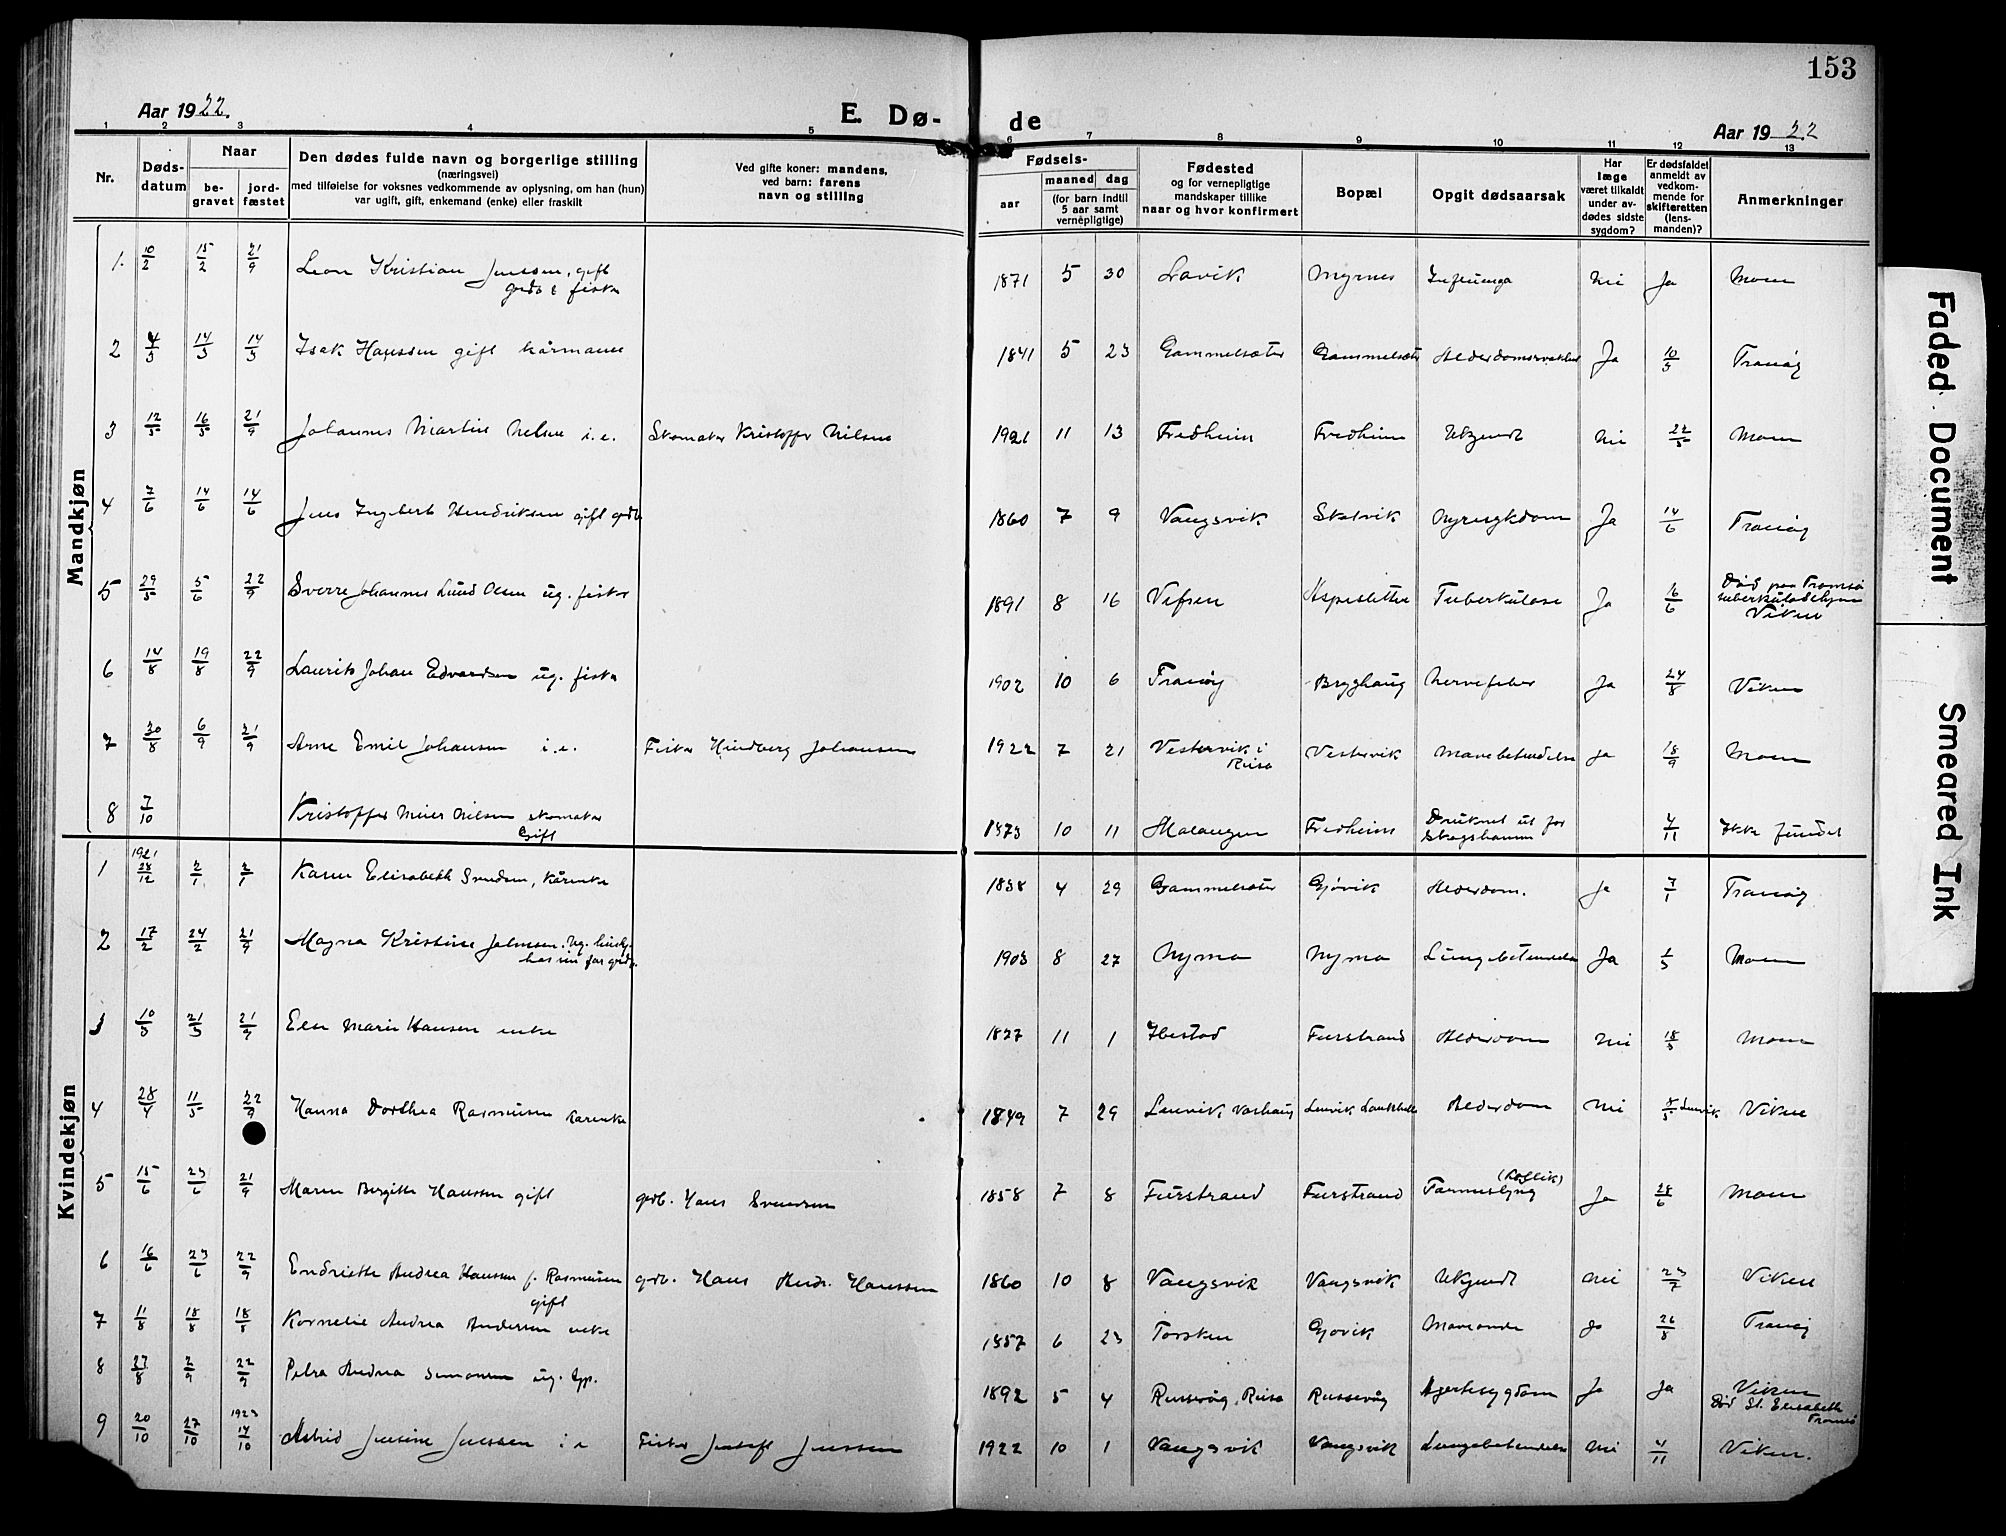 153
Aar 1922.
E. Dø-
de
Aar 1922
1 2 3 4 5 6 7 8 9 10 11 12 13
Nr.
Døds-
datum
Naar
be-
gravet
jord-
fæstet
Den dødes fulde navn og borgerlige stilling
(næringsvei)
med tilføielse for voksnes vedkommende av oplysning, om han (hun)
var ugift, gift, enkemand (enke) eller fraskilt
Ved gifte koner: mandens,
ved barn: farens
navn og stilling
Fødsels-
aar
maaned dag
(for barn indtil
5 aar samt
vernepligtige)
Fødested
og for vernepligtige
mandskaper tillike
naar og hvor konfirmert
Bopæl
Opgit dødsaarsak
Har
læge
været tilkaldt
under av-
dødes sidste
sygdom?
Er dødsfaldet
anmeldt av
vedkom-
mende for
skifteretten
(lens-
manden)?
Anmerkninger
Mandkjøn
1. 10/2 15/2 21/9 Leon Kristian Jenssen, gift 1871 5 30 Lavik Myrnes Influenga Nei Ja Moen
grdb & fisker
2 4/3 14/3 14/3 Isak Hanssen gift kårmann 1841 5 23 Gammelsæter Gammelsæter Alderdomssvakhet Ja 10/3 Tranøy
3 12/5 16/5 21/9 Johannes Martin Nilsen i.e. Skomaker Kristoffer Nilsen 1921 11 13 Fredheim Fredheim Ukjendt Nei 22/5 Moen
4 7/6 14/6 14/6 Jens Ingebert Hendriksen gift grdb 1860 7 9 Vangsvik Skatvik Nyresykdom Ja 14/6 Tranøy
5 29/5 5/6 22/9 Sverre Johannes Lund Olsen ug. fisker 1891 8 16 Vefsen Aspesletten Tuberkulose Ja 16/6 Død paa Tromsø
tuberkulosehjem
Viken
6 14/8 19/8 22/9 Laurits Johan Edvardsen ug. fisker 1902 10 6 Tranøy Bryghaug Nervefeber Ja 24/8 Viken
7 30/8 6/9 21/9 Arne Emil Johansen i.e. Fisker Hindberg Johansen 1922 7 21 Vestervik i Vestervik Mavebetendelse Ja 18/9 Moen
Reisa
8 7/10 Kristoffer Meier Nilsen skomaker 1873 10 11 Malangen Fredheim Druknet ut for 4/11 Ikke fundet
Gift
Skogshamn
Kvindekjøn
1 1921 28/12 2/1 2/1 Karen Elisabeth Svendsen, kårenke 1838 4 29 Gammelsæter Gjøvik Alderdom. Ja 7/1 Tranøy
2 17/2 24/2 21/9 Magna Kristine Johnsen. Ug. hush. 1903 8 27 Nymo Nymo Lungebetendelse Ja 1/3 Moen
hos sin far grdb.
3 10/3 21/3 21/9 Else Marie Hansen enke 1827 11 1 Ibestad Furstrand Alderdom Nei 18/3 Moen
4 28/4 11/5 22/9 Hanna Dorthea Rasmusen Kårenke 1849 7 29 Lenvik Vorhaug Lenvik Alderdom Nei 8/5 Lenvik Viken
5 15/6 23/6 21/9 Maren Bergitte Hanssen gift grdb. Hans Svendsen 1858 7 8 Furstrand Furstrand Tarmuslyng (Kollik) Ja 28/6 Moen
6 16/6 23/6 22/9 Endriette Andrea Hanssen f. Rasmusen grdb. Hans Andr. Hanssen 1860 10 8 Vangsvik Vangsvik Ukjendt Nei 23/7 Viken
gift
7 11/8 18/8 18/8 Kornelie Andrea Andersen enke 1857 6 23 Torsken Gjøvik Maveonde Ja 26/8 Tranøy
8 27/8 2/9 22/9 Petra Andrea Simonsen ug. tjp. 1892 5 4 Russevåg, Reisa Russevåg Hjertesygdom Ja Ja Viken
Død St. Elisabeth
Tromsø
9 20/10 27/10 1923 14/10 Astrid Jensine Jenssen i e Fisker Josefs Jenssen 1922 10 1 Vangsvik Vangsvik Lungebetendelse Nei 4/11 Viken.
Faded Document
Smeared Ink